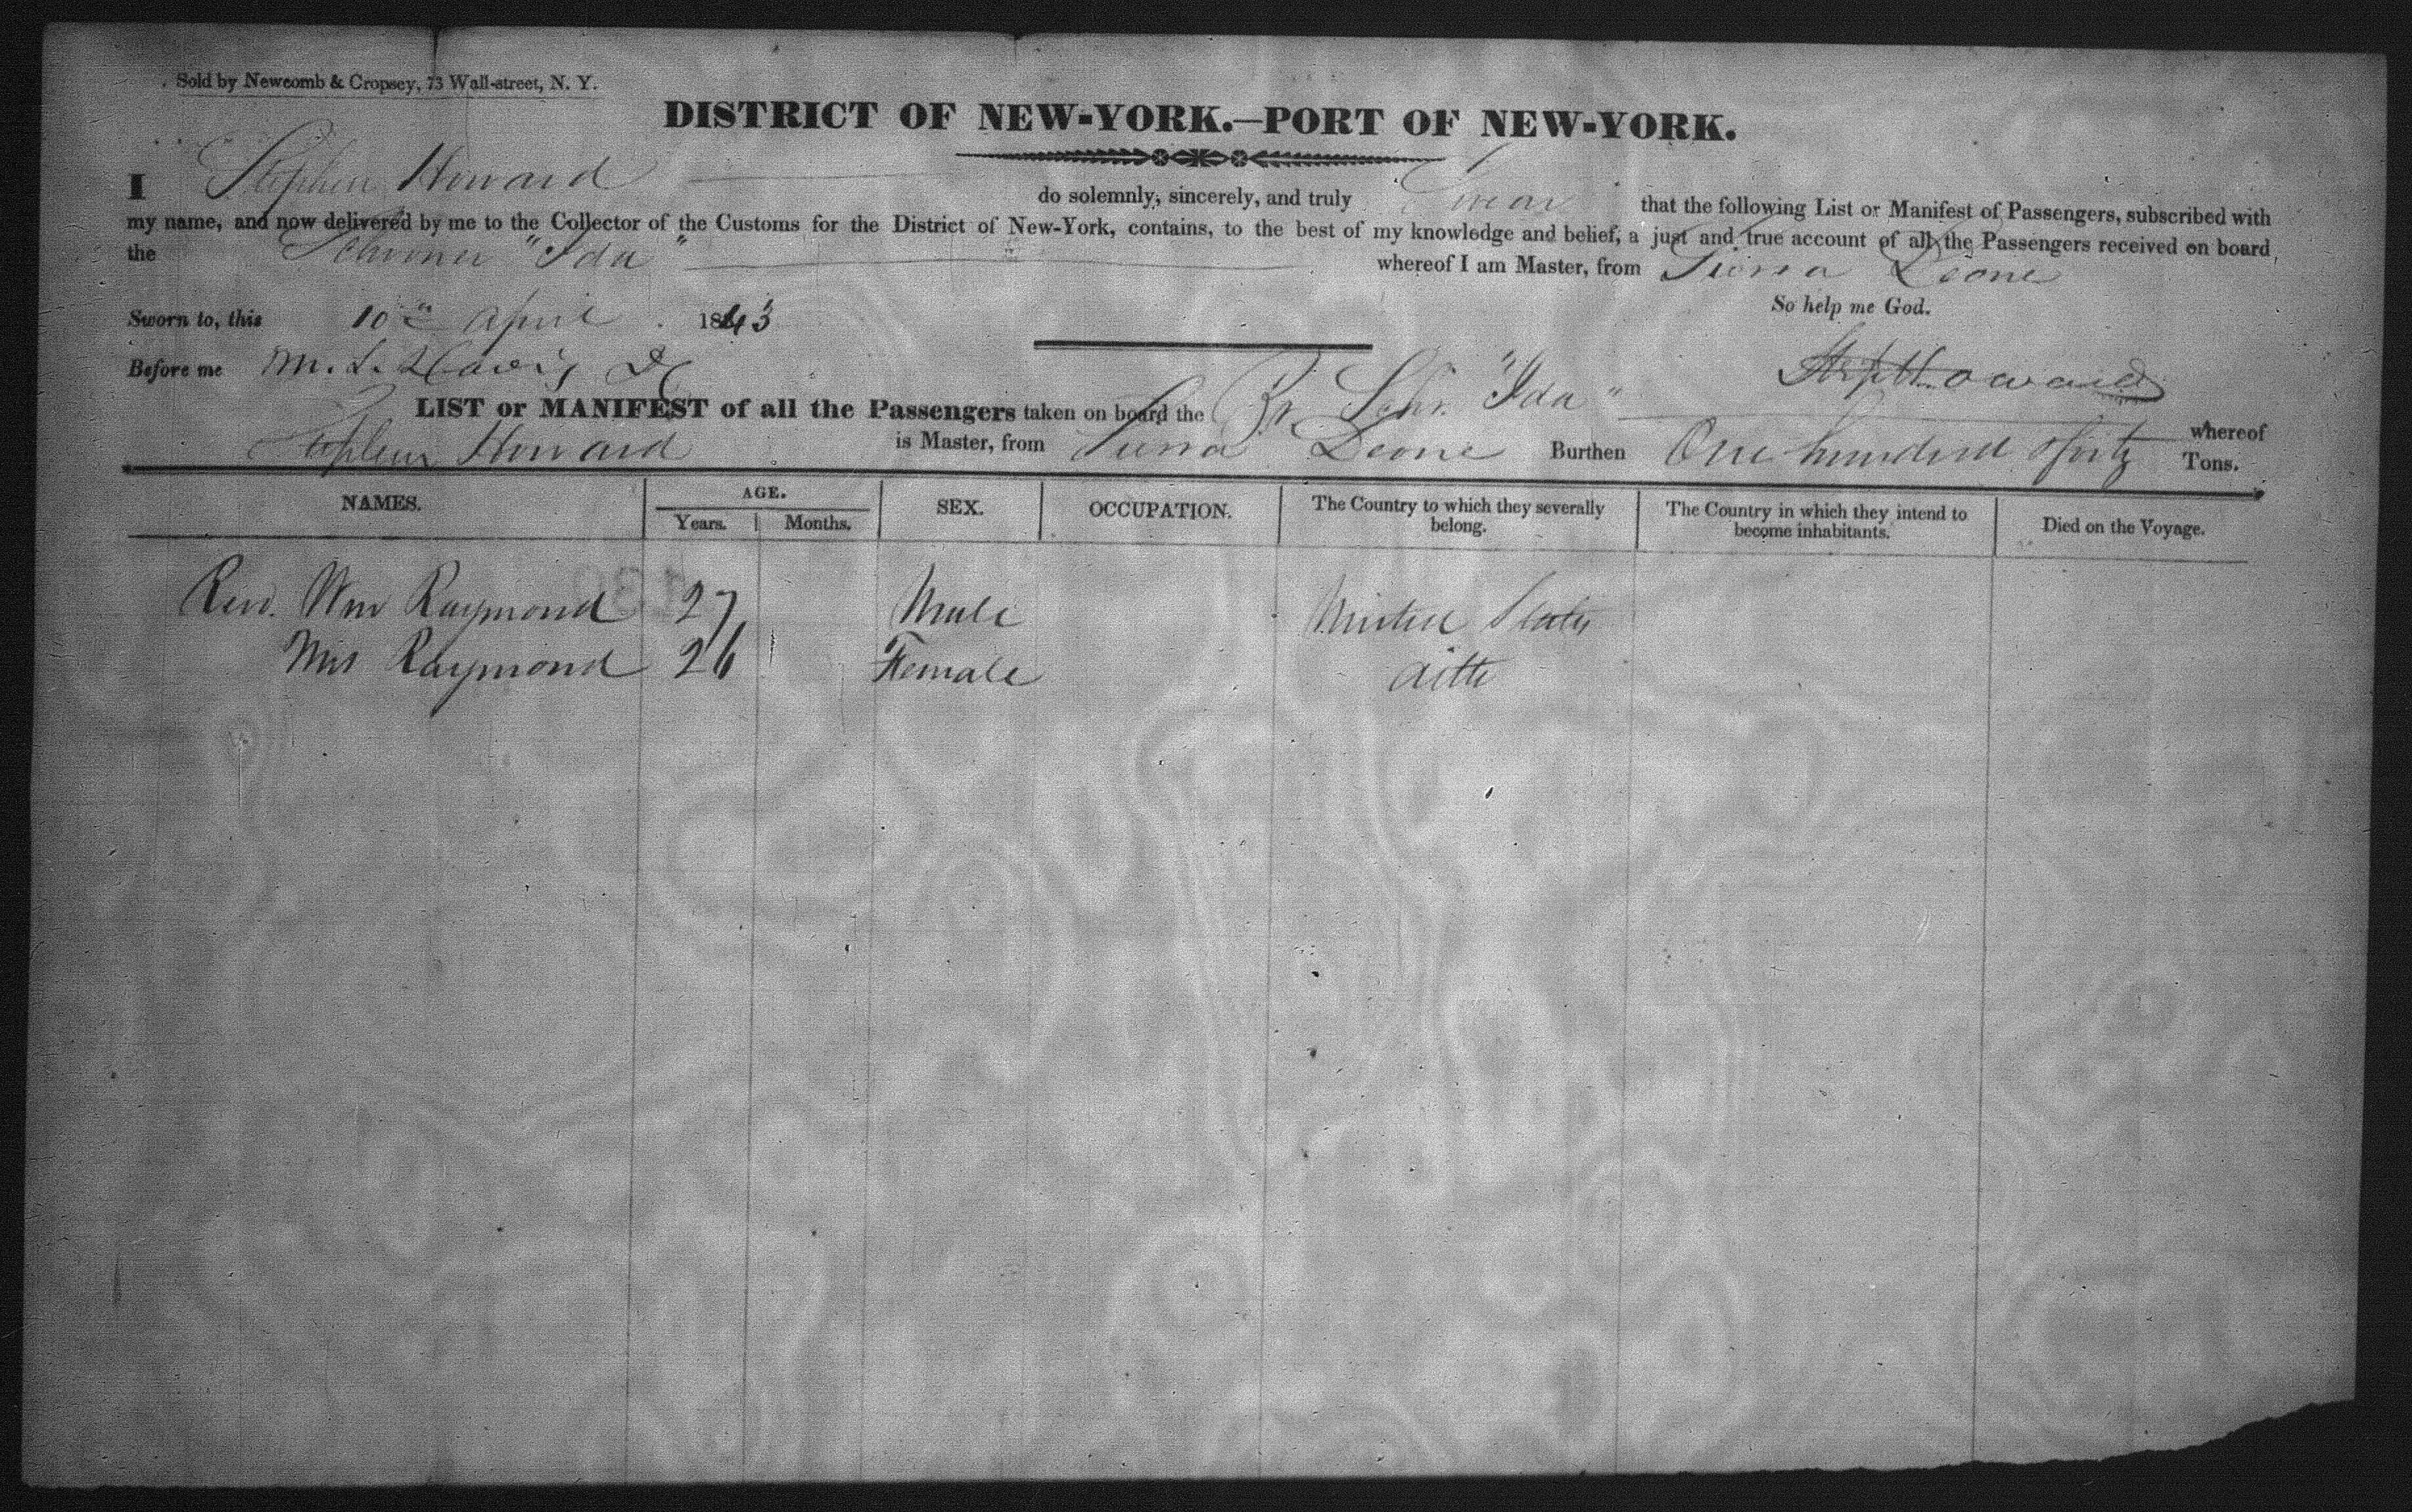 Sold by Newcomb & Cropsey, 73 Wall-street, N. Y.
DISTRICT OF NEW-YORK.—PORT OF NEW-YORK.
I Stephen Howard do solemnly, sincerely, and truly Swear that the following List or Manifest of Passengers, subscribed with
my name, and now delivered by me to the Collector of the Customs for the District of New-York, contains, to the best of my knowledge and belief, a just and true account of all the Passengers received on board
the Schooner "Ida" whereof I am Master, from Sierra Leone
So help me God.
Sworn to, this 10th April 1843
Before me M. L. Davis
Steph Howard
LIST or MANIFEST of all the Passengers taken on board the Br. Schr. "Ida" whereof
Stephen Howard is Master, from Sierra Leone Burthen One hundred & forty Tons.
NAMES. AGE. Years. Months. SEX. OCCUPATION. The Country to which they severally belong. The Country in which they intend to become inhabitants. Died on the Voyage.
Rev. Wm Raymond 27 Male United States
Mrs Raymond 26 Female ditto